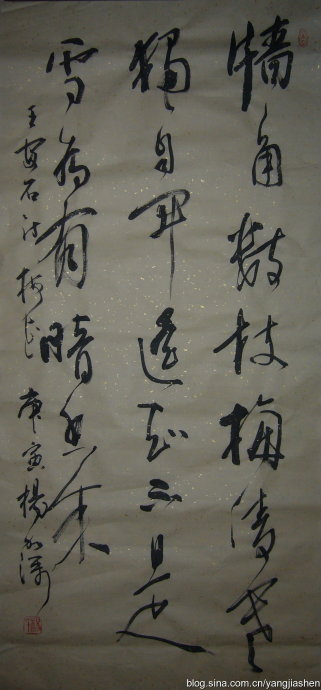 牆角數枝梅凌寒
獨自開遙知不是
雪為有暗香來
王安石詩梅花 庚寅楊加深
blog.sina.com.cn/yangjiashen